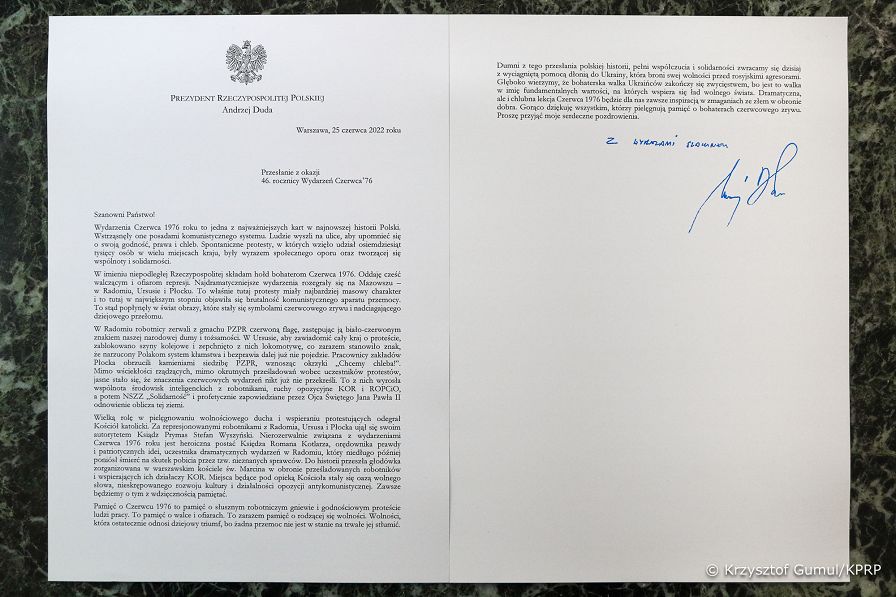 PREZYDENT RZECZYPOSPOLITEJ POLSKIEJ
Andrzej Duda
Warszawa, 25 czerwca 2022 roku
Przesłanie z okazji
46. rocznicy Wydarzeń Czerwca'76
Szanowni Państwo!
Wydarzenia Czerwca 1976 roku to jedna z najważniejszych kart w najnowszej historii Polski.
Wstrząsnęły one posadami komunistycznego systemu. Ludzie wyszli na ulice, aby upomnieć się
o swoją godność, prawa i chleb. Spontaniczne protesty, w których wzięło udział osiemdziesiąt
tysięcy osób w wielu miejscach kraju, były wyrazem społecznego oporu oraz tworzącej się
wspólnoty i solidarności.
W imieniu niepodległej Rzeczypospolitej składam hołd bohaterom Czerwca 1976. Oddaję cześć
walczącym i ofiarom represji. Najdramatyczniejsze wydarzenia rozegrały się na Mazowszu –
w Radomiu, Ursusie i Płocku. To właśnie tutaj protesty miały najbardziej masowy charakter
i to tutaj w największym stopniu objawiła się brutalność komunistycznego aparatu przemocy.
To stąd popłynęły w świat obrazy, które stały się symbolami czerwcowego zrywu i nadciągającego
dziejowego przełomu.
W Radomiu robotnicy zerwali z gmachu PZPR czerwoną flagę, zastępując ją biało-czerwonym
znakiem naszej narodowej dumy i tożsamości. W Ursusie, aby zawiadomić cały kraj o proteście,
zablokowano szyny kolejowe i zepchnięto z nich lokomotywę, co zarazem stanowiło znak,
że narzucony Polakom system kłamstwa i bezprawia dalej już nie pojedzie. Pracownicy zakładów
Płocka obrzucili kamieniami siedzibę PZPR, wznosząc okrzyki „Chcemy chleba!".
Mimo wściekłości rządzących, mimo okrutnych prześladowań wobec uczestników protestów,
jasne stało się, że znaczenia czerwcowych wydarzeń nikt już nie przekreśli. To z nich wyrosła
wspólnota środowisk inteligenckich z robotnikami, ruchy opozycyjne KOR i ROPCiO,
a potem NSZZ „Solidarność" i profetycznie zapowiedziane przez Ojca Świętego Jana Pawła II
odnowienie oblicza tej ziemi.
Wielką rolę w pielęgnowaniu wolnościowego ducha i wspieraniu protestujących odegrał
Kościół katolicki. Za represjonowanymi robotnikami z Radomia, Ursusa i Płocka ujął się swoim
autorytetem Ksiądz Prymas Stefan Wyszyński. Nierozerwalnie związana z wydarzeniami
Czerwca 1976 roku jest heroiczna postać Księdza Romana Kotlarza, orędownika prawdy
i patriotycznych idei, uczestnika dramatycznych wydarzeń w Radomiu, który niedługo później
poniósł śmierć na skutek pobicia przez tzw. nieznanych sprawców. Do historii przeszła głodówka
zorganizowana w warszawskim kościele św. Marcina w obronie prześladowanych robotników
i wspierających ich działaczy KOR. Miejsca będące pod opieką Kościoła stały się oazą wolnego
słowa, nieskrępowanego rozwoju kultury i działalności opozycji antykomunistycznej. Zawsze
będziemy o tym z wdzięcznością pamiętać.
Pamięć o Czerwcu 1976 to pamięć o słusznym robotniczym gniewie i godnościowym proteście
ludzi pracy. To pamięć o walce i ofiarach. To zarazem pamięć o rodzącej się wolności. Wolności,
która ostatecznie odnosi dziejowy triumf, bo żadna przemoc nie jest w stanie na trwałe jej stłumić.
Dumni z tego przesłania polskiej historii, pełni współczucia i solidarności zwracamy się dzisiaj
z wyciągniętą pomocną dłonią do Ukrainy, która broni swej wolności przed rosyjskimi agresorami.
Głęboko wierzymy, że bohaterska walka Ukraińców zakończy się zwycięstwem, bo jest to walka
w imię fundamentalnych wartości, na których wspiera się ład wolnego świata. Dramatyczna,
ale i chlubna lekcja Czerwca 1976 będzie dla nas zawsze inspiracją w zmaganiach ze złem w obronie
dobra. Gorąco dziękuję wszystkim, którzy pielęgnują pamięć o bohaterach czerwcowego zrywu.
Proszę przyjąć moje serdeczne pozdrowienia.
Z WYRAZAMI SZACUNKU
© Krzysztof Gumul/KPRP